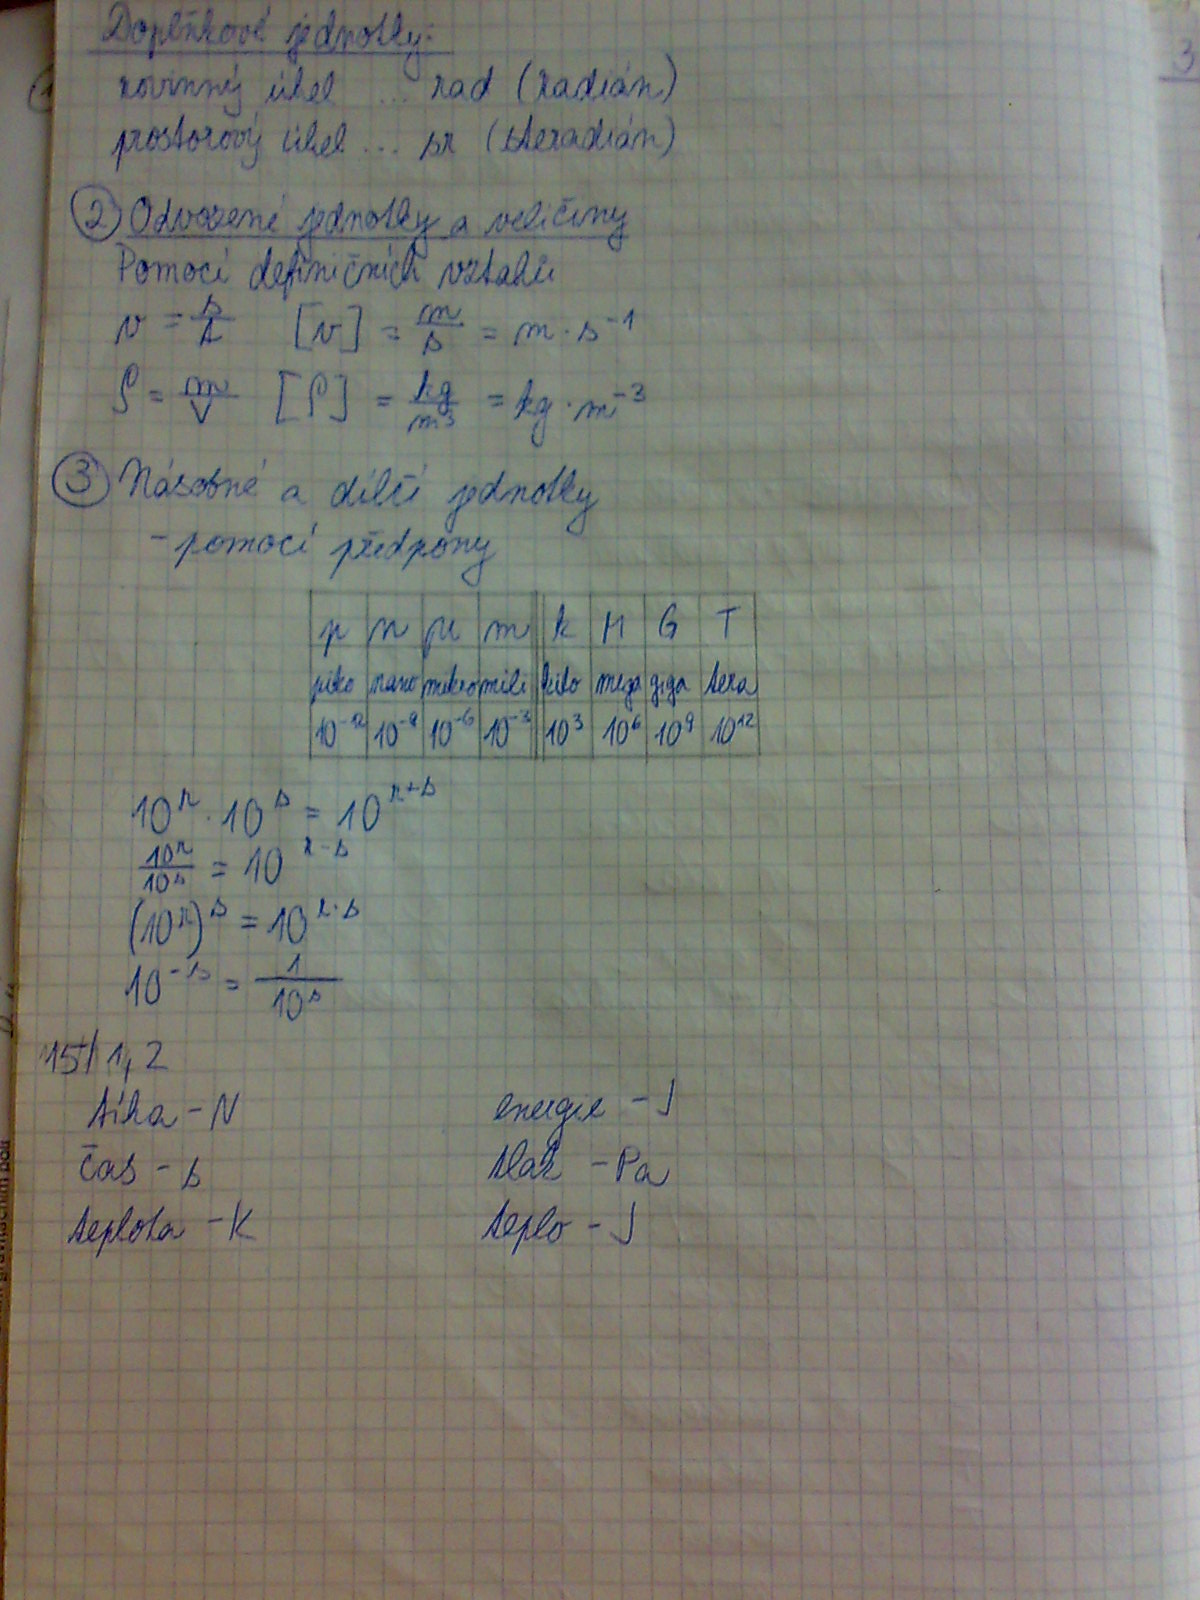 Doplňkové jednotky:
rovinný úhel ... rad (radián)
prostorový úhel ... sr (steradián)
3
② Odvozené jednotky a veličiny
Pomocí definičních vztahů
v = s/t [v] = m/s = m · s⁻¹
ρ = m/V [ρ] = kg/m³ = kg · m⁻³
③ Násobné a dílčí jednotky
- pomocí předpony
p n μ m k M G T
piko nano mikro mili kilo mega giga tera
10⁻¹² 10⁻⁹ 10⁻⁶ 10⁻³ 10³ 10⁶ 10⁹ 10¹²
10ʳ · 10ˢ = 10ʳ⁺ˢ
10ʳ/10ˢ = 10ʳ⁻ˢ
(10ʳ)ˢ = 10ʳ·ˢ
10⁻ˢ = 1/10ˢ
15/ 1, 2
tíha - N energie - J
čas - s tlak - Pa
teplota - K teplo - J